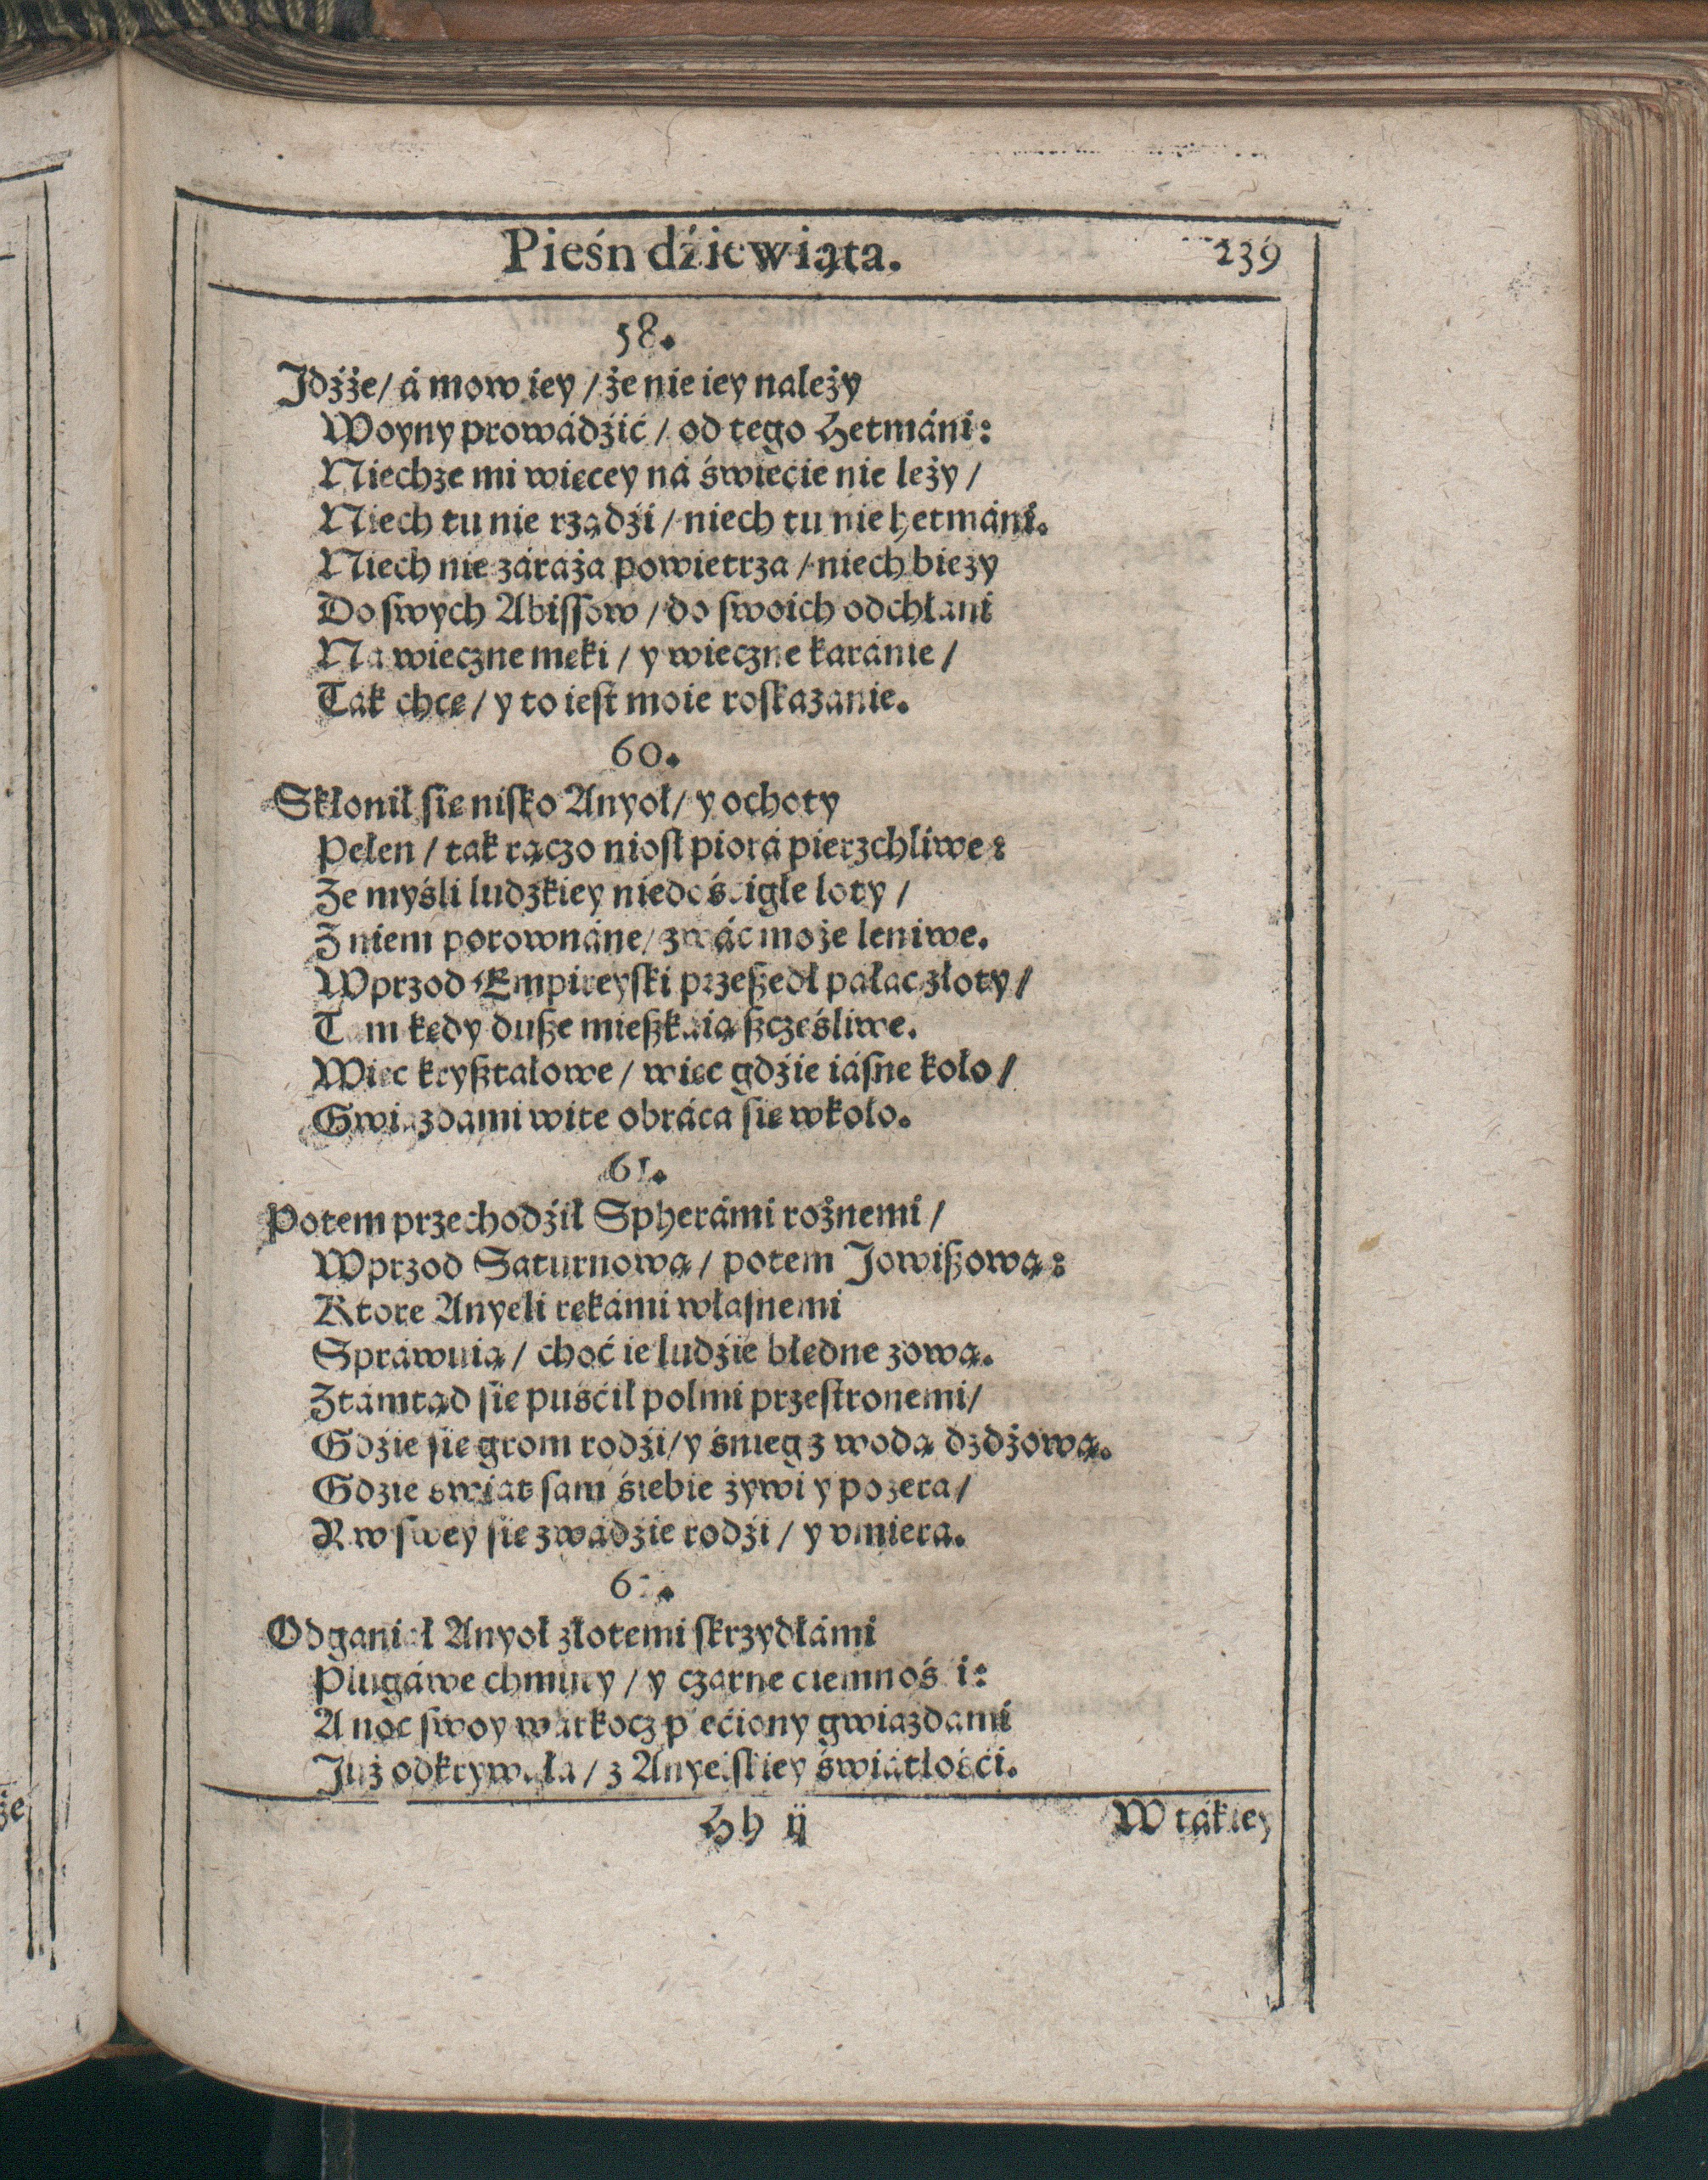 Pieśn dźiewiąta. 239
58.
Jdźże/ á mow iey / że nie iey należy
Woyny prowádźić / od tego Hetmáni:
Niechże mi więcey ná świećie nie leży /
Niech tu nie rządźi / niech tu nie hetmáni.
Niech nie záraża powietrza / niech bieży
Do ſwych Abiſſow / do ſwoich odchłani
Na wieczne męki / y wieczne karánie /
Ták chcę / y to ieſt moie roſkazanie.
60.
Skłonił ſie niſko Anyoł / y ochoty
Pełen / tak rączo nioſł piorá pierzchliwe:
Że myśli ludzkiey niedośćigłe loty /
Z niem porownáne / zwáć może leniwe.
Wprzod Empireyſki przeßedł pałac złoty /
Tam kędy duße mießkáią ßczęśliwe.
Więc kryßtałowe / więc gdźie iáſne koło /
Gwiazdami wite obráca ſie wkoło.
61.
Potem przechodźił Spherámi rożnemi /
Wprzod Saturnową / potem Jowißową:
Ktore Anyeli rękámi właſnemi
Spráwuią / choć ie ludźie błędne zową.
Ztámtąd ſie puśćił polmi przeſtronemi /
Gdźie ſie grom rodźi / y śnieg z wodą dżdżową.
Gdźie świat ſam śiebie żywi y pożera /
Y w ſwey ſie zwádźie rodźi / y vmiera.
Odganiał Anyoł złotemi ſkrzydłámi
Plugáwe chmury / y czarne ciemnośći:
A noc ſwoy wárkocz plećiony gwiazdami
Już odkrywáła / z Anyelſkiey świátłośći.
Hh ij W tákiey
że